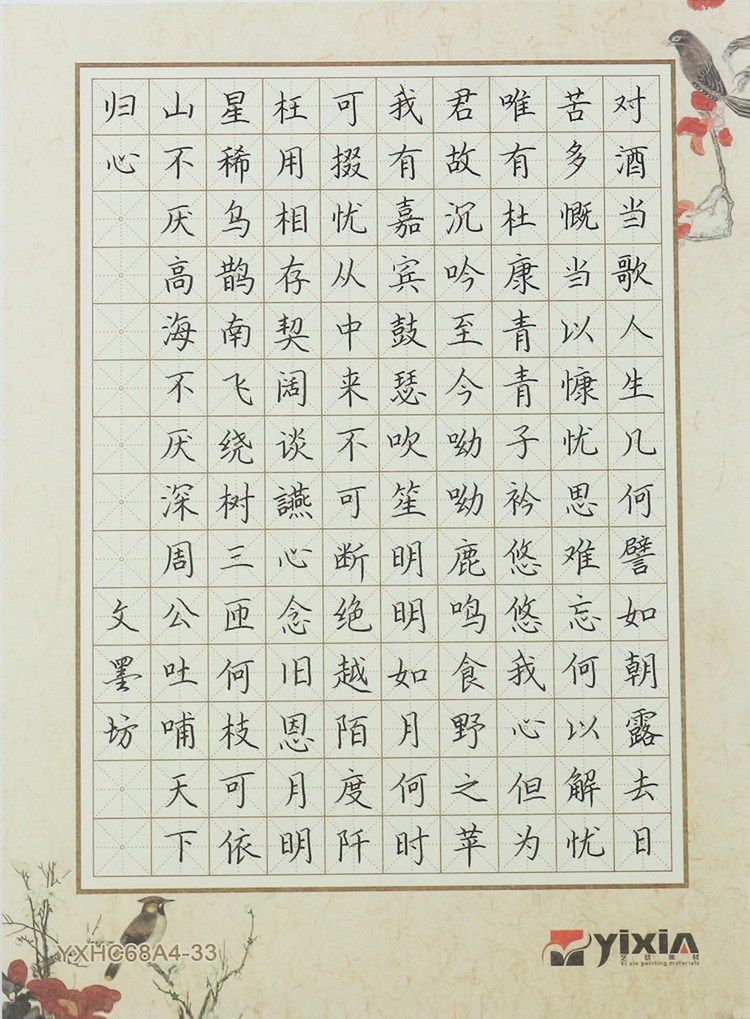 对酒当歌人生几何譬如朝露去日
苦多慨当以慷忧思难忘何以解忧
唯有杜康青青子衿悠悠我心但为
君故沉吟至今呦呦鹿鸣食野之苹
我有嘉宾鼓瑟吹笙明明如月何时
可掇忧从中来不可断绝越陌度阡
枉用相存契阔谈讌心念旧恩月明
星稀乌鹊南飞绕树三匝何枝可依
山不厌高海不厌深周公吐哺天下
归心 文墨坊
YXHC68A4-33
yixin
艺欣画材
Yi xin painting materials